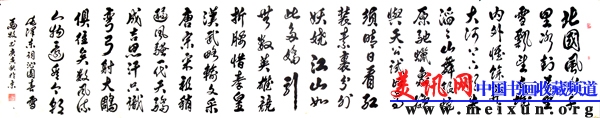 北國風光千
里冰封萬里
雪飄望長城
内外惟餘莽莽
大河上下頓失
滔滔山舞銀蛇
原馳蠟象欲
與天公試比高
須晴日看紅
裝素裹分外
妖嬈江山如
此多嬌引
無數英雄競
折腰惜秦皇
漢武略輸文采
唐宗宋祖稍
遜風騷一代天驕
成吉思汗只識
彎弓射大雕
俱往矣數風流
人物還看今朝
毛澤東詞沁園春雪
美讯网
中国书画收藏频道
www.meixun.org